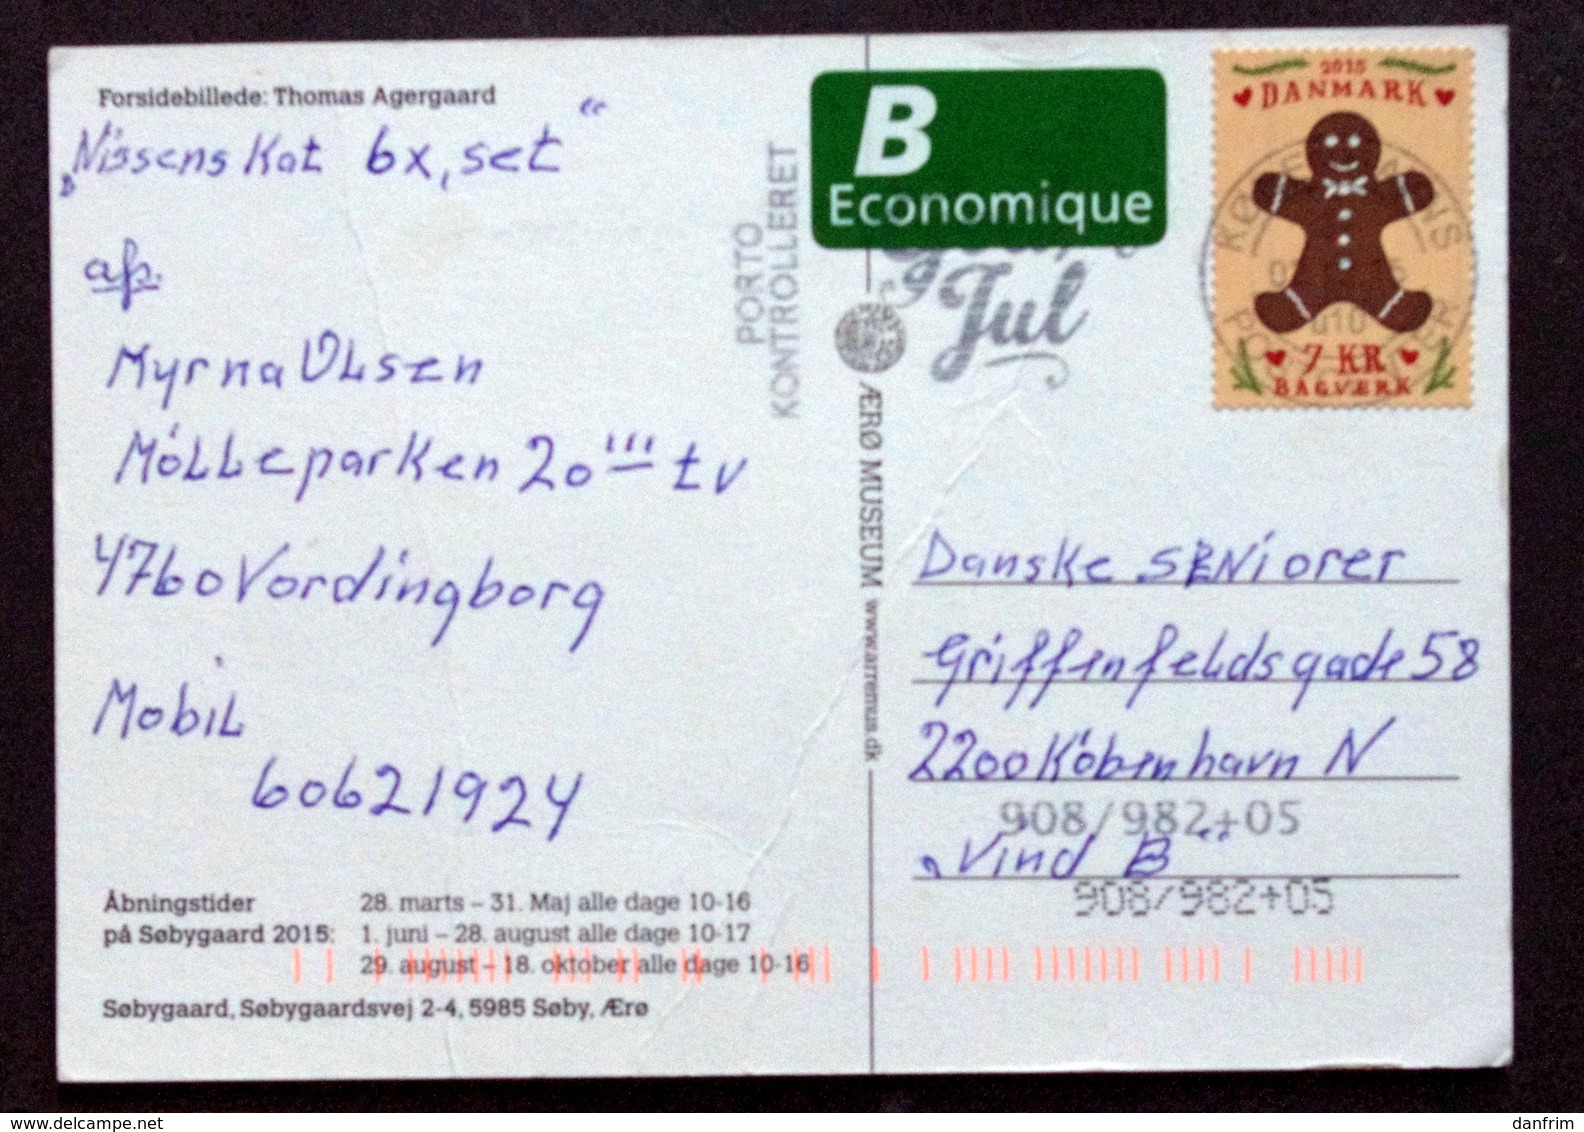 Forsidebillede: Thomas Agergaard
„Nissens Kat 6x, set"
afs.
Myrna Olsen
Mólleparken 20 III tv
4760 Vordingborg
Mobil
60621924
Åbningstider 28. marts – 31. Maj alle dage 10-16
på Søbygaard 2015: 1. juni – 28. august alle dage 10-17
29. august – 18. oktober alle dage 10-16
Søbygaard, Søbygaardsvej 2-4, 5985 Søby, Ærø
PORTO
KONTROLLERET
ÆRØ MUSEUM www.arremus.dk
B
Economique
Jul
2015
DANMARK
7 KR
BAGVÆRK
Danske SENiorer
Griffenfeldsgade 58
2200 Kóbenhavn N
908/982+05
„Vind B"
908/982+05
www.delcampe.net
danfrim